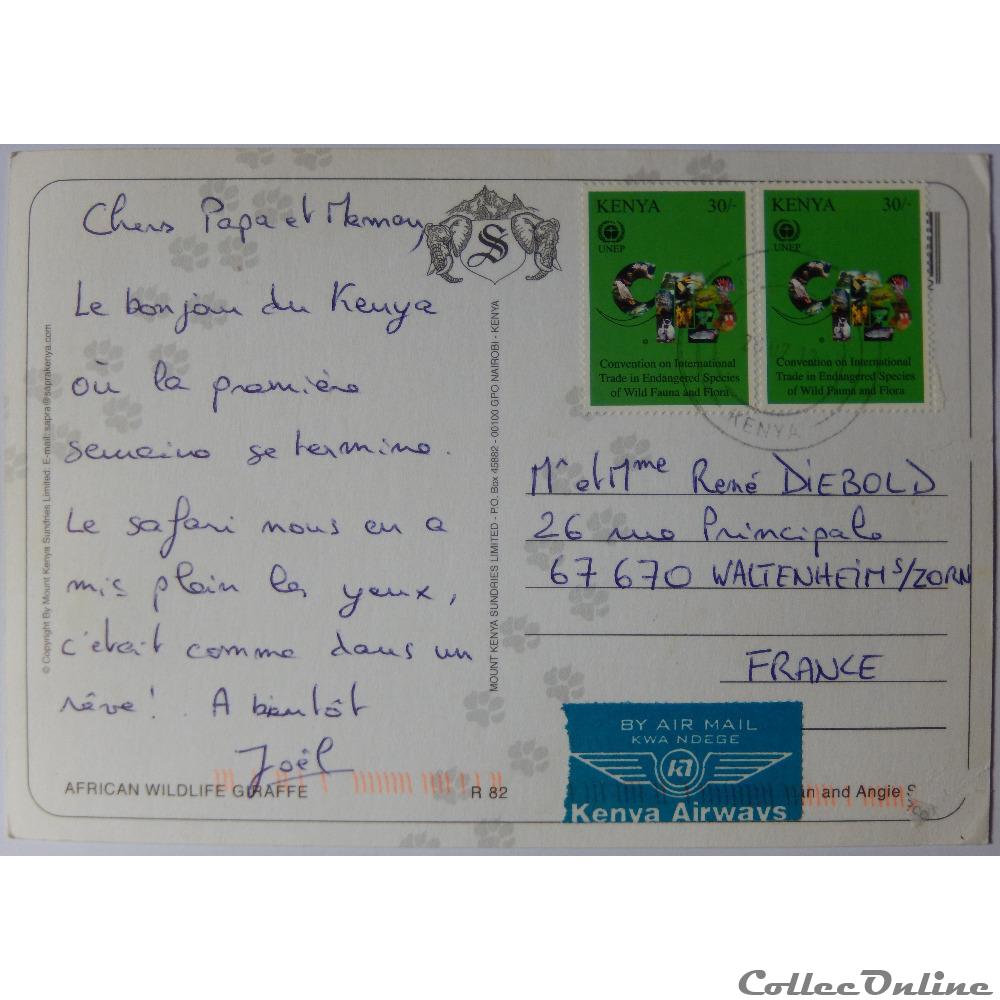 Chers Papa et Maman,
Le bonjour du Kenya
où la première
semaine se termine.
Le safari nous en a
mis plein les yeux,
c'était comme dans un
rêve! A bientôt
Joël
AFRICAN WILDLIFE GIRAFFE
R 82
© Copyright By Mount Kenya Sundries Limited. E-mail: sapra@saprakenya.com
S
MOUNT KENYA SUNDRIES LIMITED - P.O. Box 45882 - 00100 GPO NAIROBI - KENYA
KENYA 30/-
UNEP
Convention on International
Trade in Endangered Species
of Wild Fauna and Flora
KENYA 30/-
UNEP
Convention on International
Trade in Endangered Species
of Wild Fauna and Flora
KENYA
Mr et Mme René DIEBOLD
26 rue Principale
67670 WALTENHEIM S/ZORN
FRANCE
BY AIR MAIL
KWA NDEGE
Kenya Airways
and Angie
CollecOnline